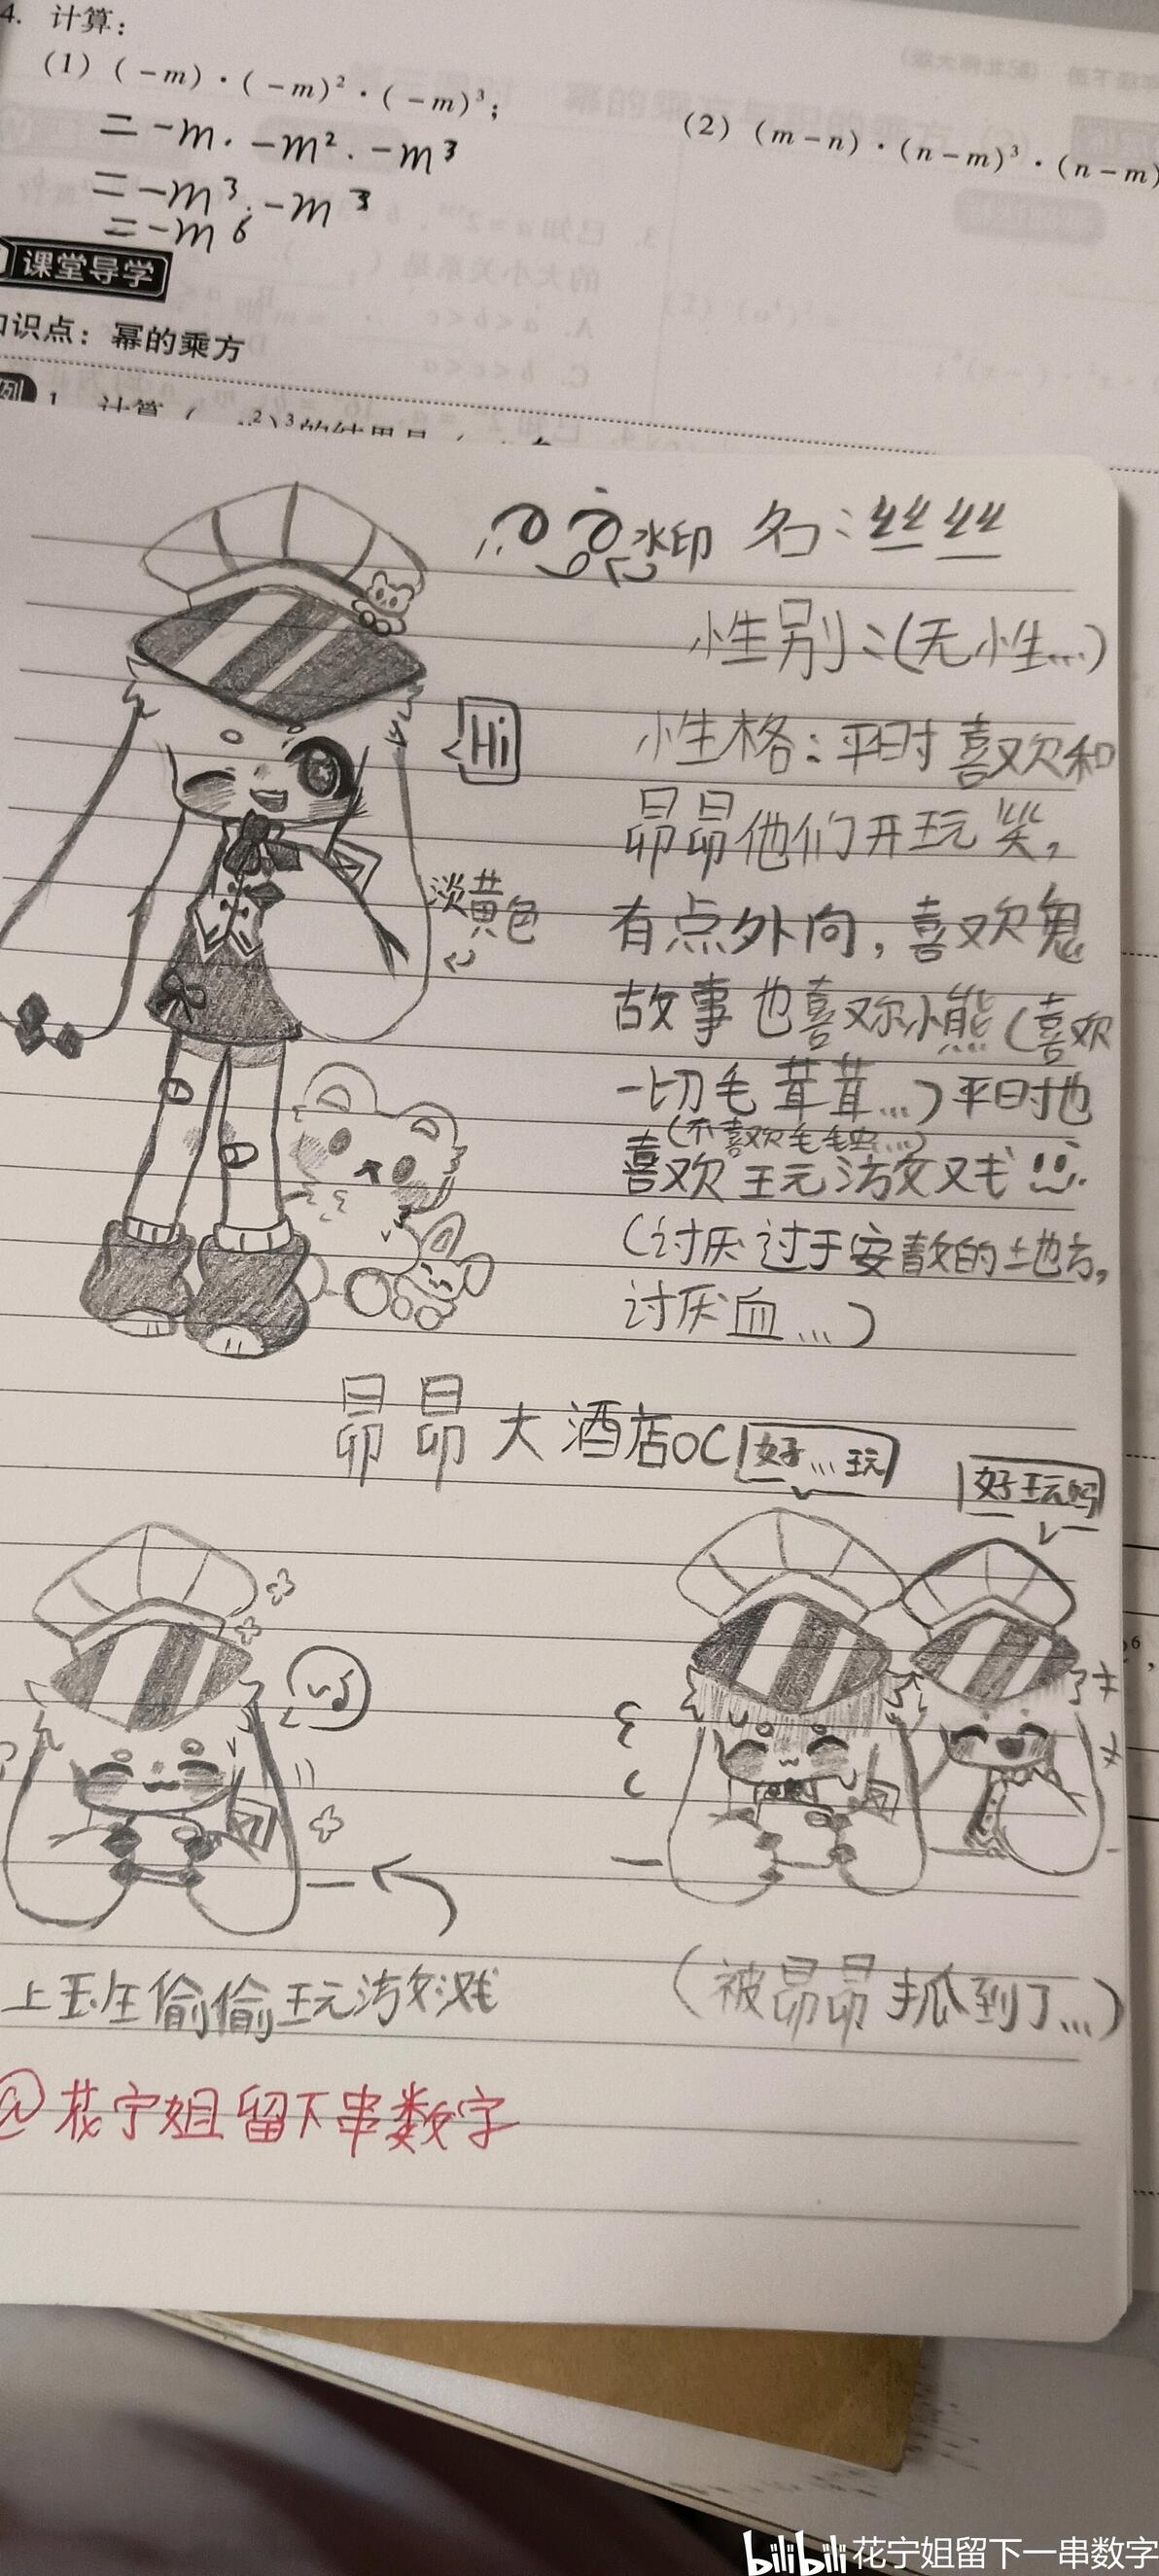 4. 计算：
(1) (-m)·(-m)²·(-m)³；
(2) (m-n)·(n-m)³·(n-m)
=-m·-m²·-m³
=-m³·-m³
=-m6
课堂导学
知识点：幂的乘方
例 1 计算
水印 名：丝丝
性别：(无性...)
Hi
性格：平时喜欢和
昴昴他们开玩笑，
淡黄色
有点外向，喜欢鬼
故事也喜欢小熊（喜欢
一切毛茸茸...）平时也
（不喜欢毛毛虫...）
喜欢玩游戏
（讨厌过于安静的地方，
讨厌血...）
昴昴大酒店OC
好...玩
好玩吗
上班偷偷玩游戏
（被昴昴抓到了...）
@花宁姐留下串数字
bilibili 花宁姐留下一串数字